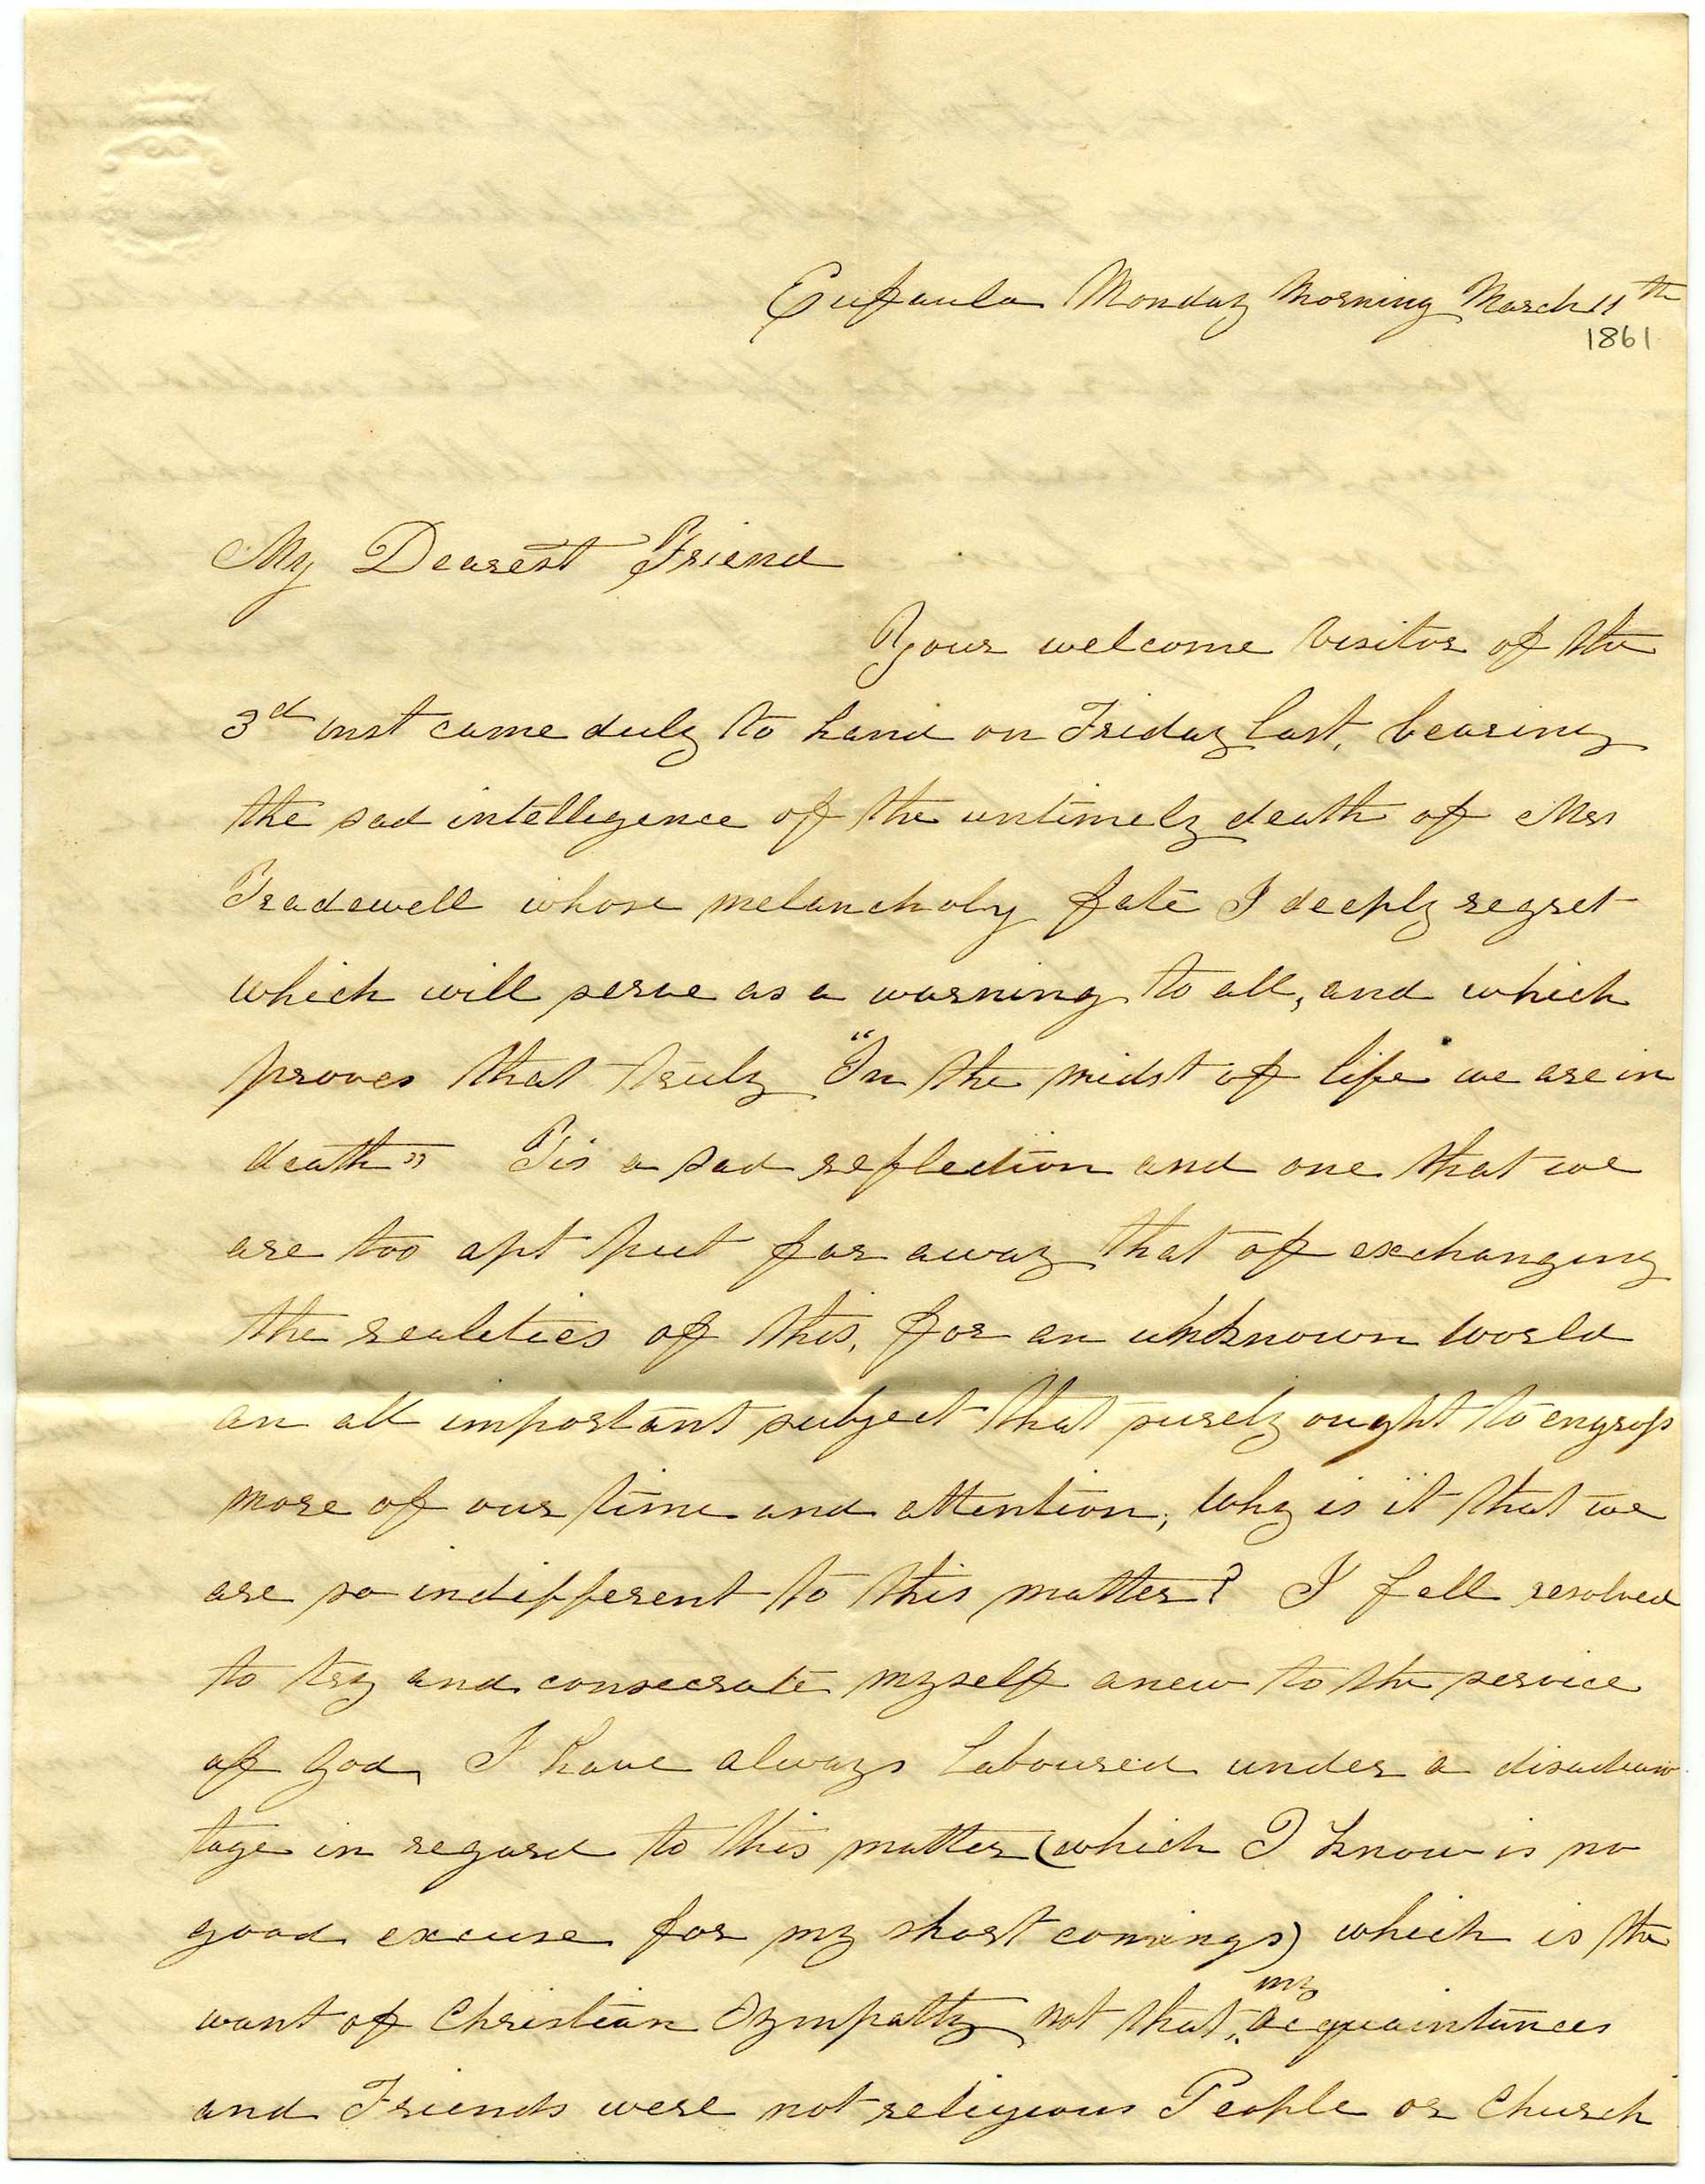 Eufaula Monday Morning March 11th
1861
My Dearest Friend
Your welcome visitor of the
3d inst came duly to hand on Friday last, bearing
the sad intelligence of the untimely death of Mrs
Tradewell whose melancholy fate I deeply regret
which will serve as a warning to all, and which
proves that truly "In the midst of life we are in
death" Tis a sad reflection and one that we
are too apt put far away that of exchanging
the realities of this, for an unknown world
an all important subject that surely ought to engross
more of our time and attention, Why is it that we
are so indifferent to this matter? I fell resolved
to try and consecrate myself anew to the service
of God, I have always laboured under a disadvan
tage in regard to this matter (which I know is no
good excuse for my short comings) which is the
want of Christian Sympathy not that my acquaintances
and Friends were not religious People or Church